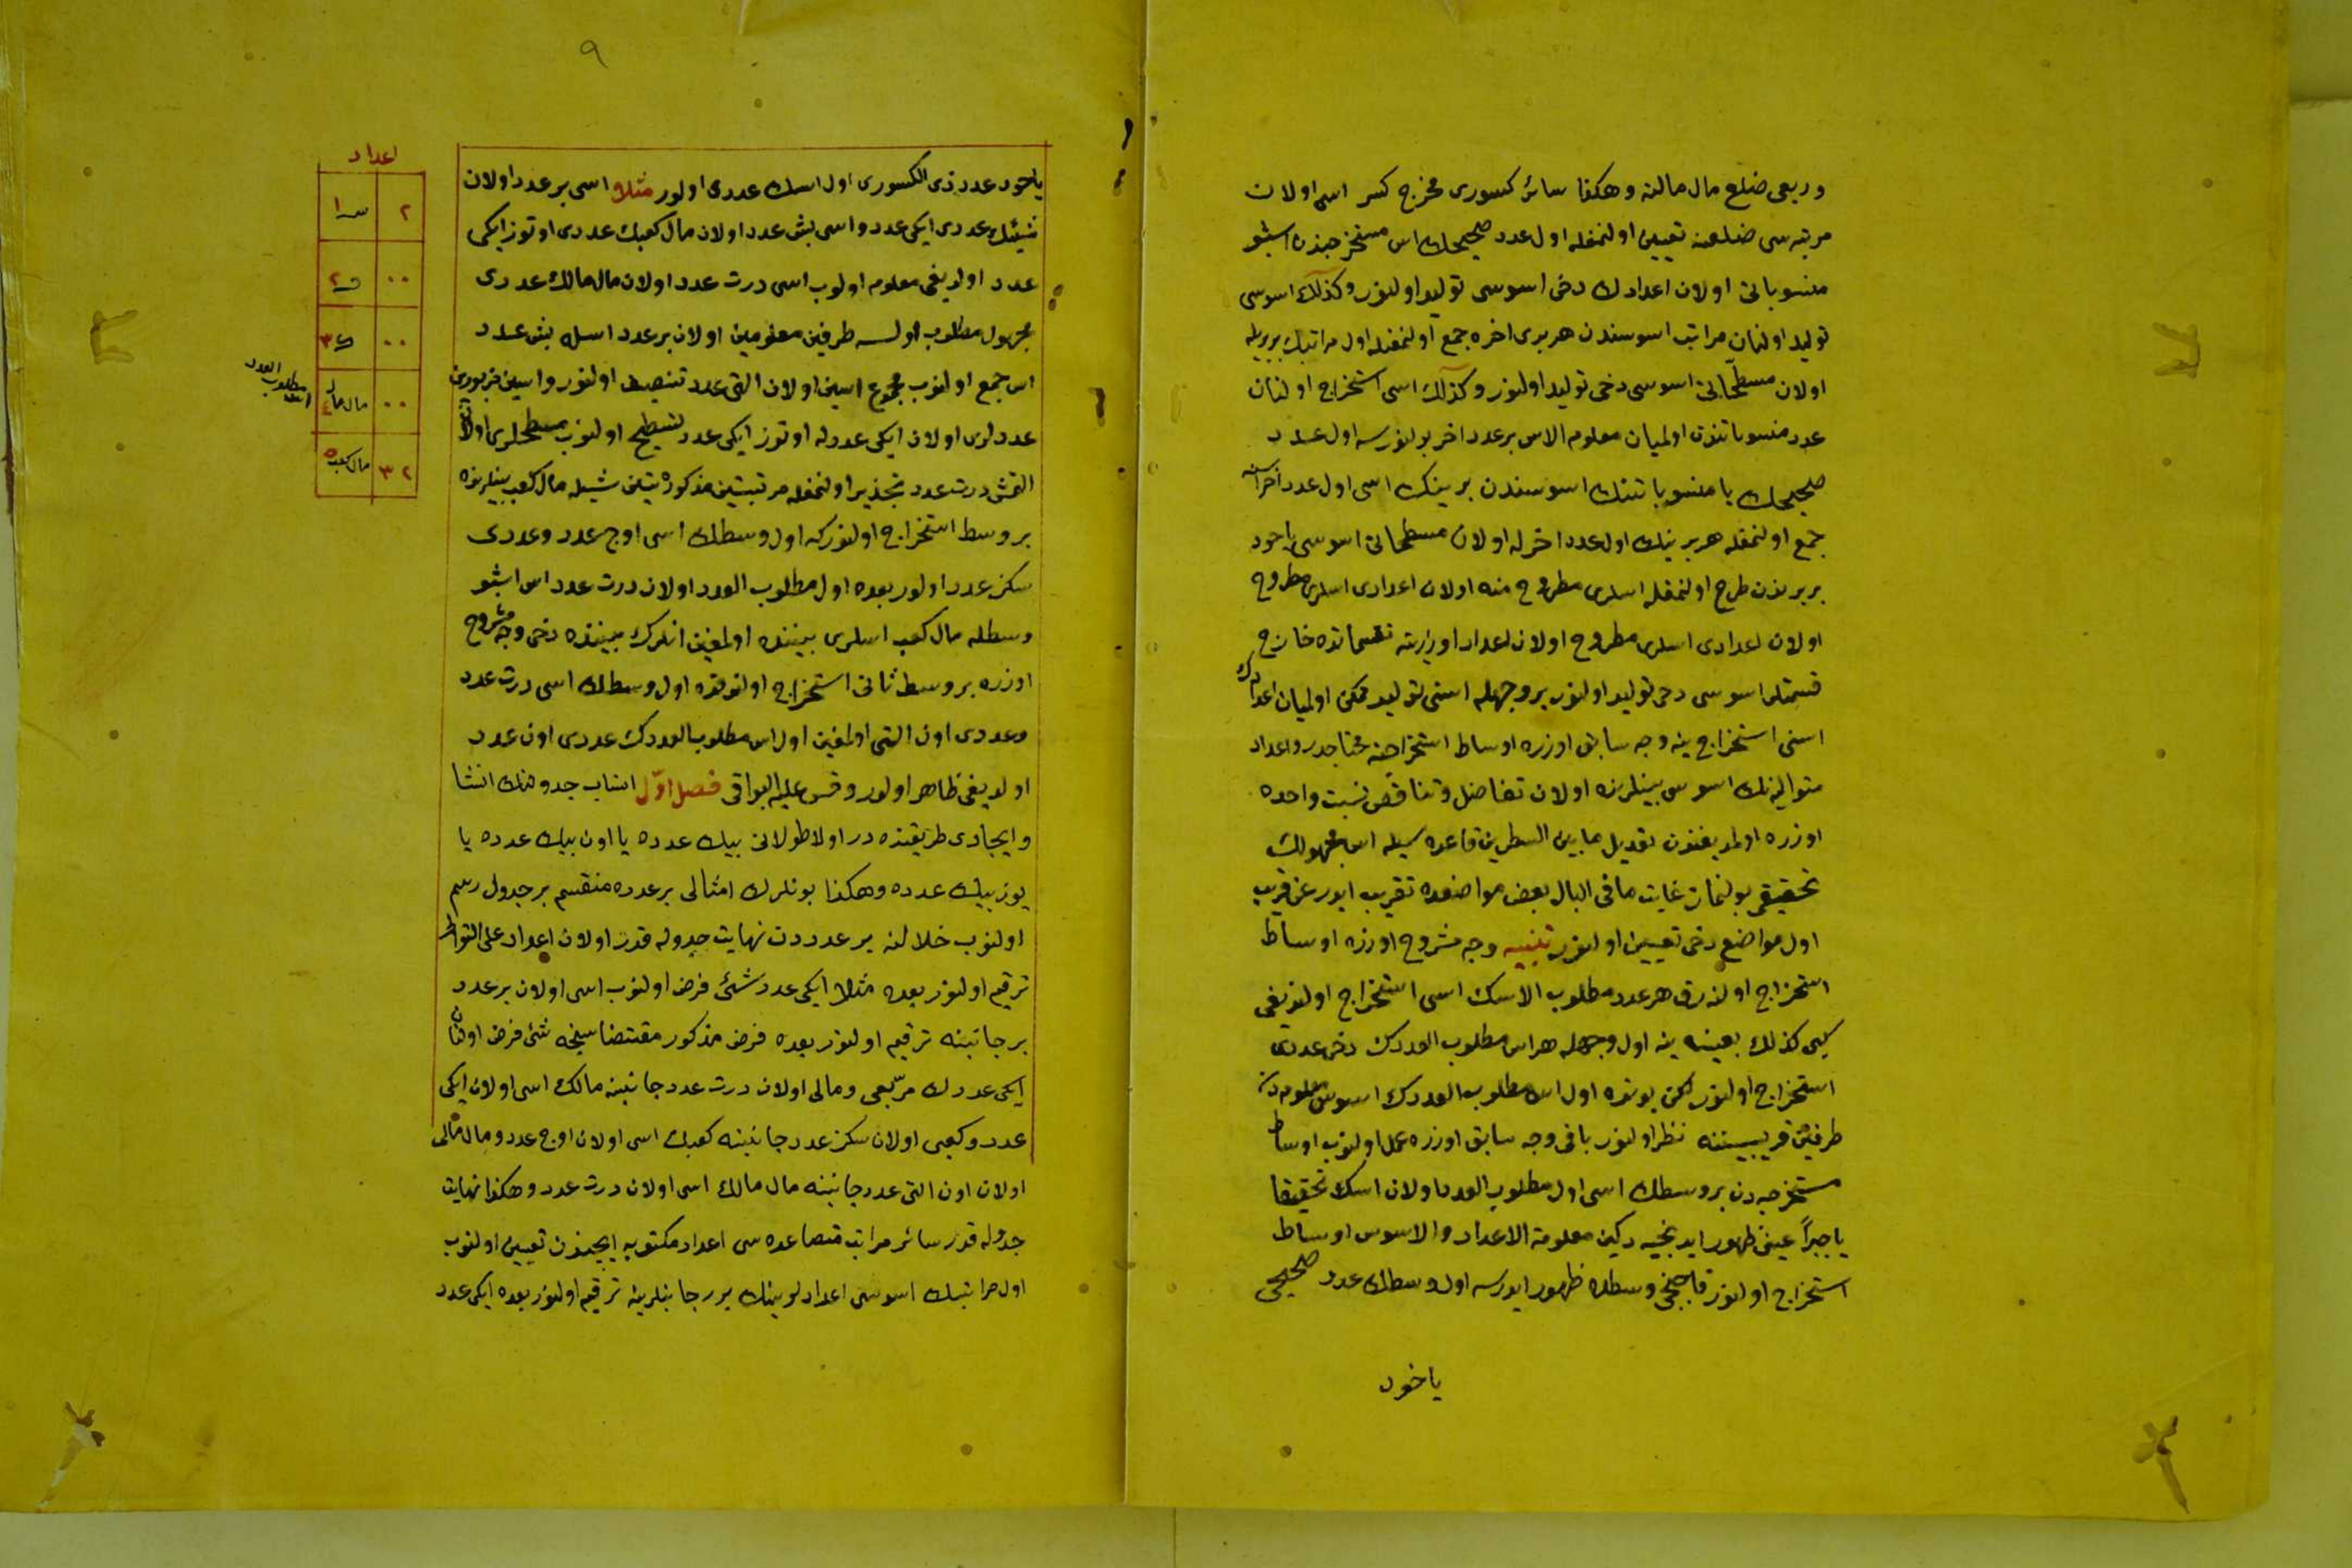 وربعی ضلع مال مالنه وهکذا سائر کسوری مخرج کسر اسمی اولان
مرتبه سی ضلعنه تعیین اولنمغله اول عدد صحیحک اس مستخرجندن اشبو
منسوباتی اولان اعدادک دخی اسوسی تولید اولنور وکذلک اسوسی
تولید اولنان مراتب اسوسندن هر بری اخره جمع اولنمغله اول مراتبک بربریله
اولان مسطحاتی اسوسی دخی تولید اولنور وکذلک اسی استخراج اولنان
عدد منسوباتندن اولمیان معلوم الاس بر عدد اخر بولنورسه اول عدد
صحیحک یا منسوباتنک اسوسندن برینک اسی اول عدد اخر اسنه
جمع اولنمغله هر برینک اول عدد اخرله اولان مسطحاتی اسوسی یاخود
بربرندن طرح اولنمغله اسلری مطروح منه اولان اعدادی اسلری مطروح
اولان اعدادی اسلری مطروح اولان اعداد اوزرینه تقسماتده خارج
قسمتلر اسوسی دخی تولید اولنور بو وجهله اسنی تولید ممکن اولمیان اعدادک
اسنی استخراج ینه وجه سابق اوزره اوساط استخراجنه محتاجدر واعداد
متوالیه نک اسوسی بینلرنده اولان تفاضل وتناقص نسبت واحده
اوزره اولمدیغندن تعدیل مابین السطرین قاعده سیله اس مجهولک
تحقیقی بولنماز غایت مافی الباب بعض مواضعده تقریب ایدر عن قریب
اول مواضع دخی تعیین اولنور تنبیه وجه مشروح اوزره اوساط
استخراج اولنه رق هر عدد مطلوب الاسک اسی استخراج اولندیغی
کبی کذلک بعینه ینه اول وجهله هر اس مطلوب العددک دخی عددی
استخراج اولنور لکن بونده اول اس مطلوب العددک اسوس معلومه دن
طرفین قریبیننه نظر اولنور باقی وجه سابق اوزره عمل اولنوب اوساط
مستخرجه دن بر وسطک اسی اول مطلوب العدد اولان اسک تحقیقا
یا جبراً عینی ظهور ایدنجیه دکین معلومة الاعداد والاسوس اوساط
استخراج اولنور قاچنجی وسطده ظهور ایدرسه اول وسطک عدد صحیحی
یاخود
۹
یاخود عدد ذی الکسوری اول اسک عددی اولور مثلا اسی بر عدد اولان
شیئک عددی ایکی عدد واسی بش عدد اولان مال کعبک عددی اوتوز ایکی
عدد اولدیغی معلوم اولوب اسی درت عدد اولان مال مالک عددی
مجهول مطلوب اولسه طرفین معلومین اولان بر عدد اسله بش عدد
اس جمع اولنوب مجموع اسین اولان التی عدد تنصیف اولنور واسین مزبورین
عددلری اولان ایکی عددله اوتوز ایکی عدد تسطیح اولنوب مسطحلری اولان
التمش درت عدد تجذیر اولنمغله مرتبتین مذکورتین شیله مال کعب بینلرنده
بر وسط استخراج اولنورکه اول وسطک اسی اوج عدد وعددی
سکز عدد اولور بعده اول مطلوب العدد اولان درت عدد اس اشبو
وسطله مال کعب اسلری بیننده اولمغین انلرک بیننده دخی وجه مشروح
اوزره بر وسط ثانی استخراج اولندقده اول وسطک اسی درت عدد
وعددی اون التی اولمغین اول اس مطلوب العددک عددی اون عدد
اولدیغی ظاهر اولور وقس علیه البواقی فصل اوّل انساب جدولنک انشا
وایجادی طریقنده در اولا طولانی بیک عدده یا اون بیک عدده یا
یوز بیک عدده وهکذا بونلرک امثالی بر عدده منقسم بر جدول رسم
اولنوب خلالنه بر عدددن نهایت جدوله قدر اولان اعداد علی التوالی
ترقیم اولنور بعده مثلا ایکی عدد شئی فرض اولنوب اسی اولان بر عدد
بر جانبنه ترقیم اولنور بعده فرض مذکور مقتضاسنجه شئ فرض اولنان
ایکی عددک مربّعی ومالی اولان درت عدد جانبنه مالک اسی اولان ایکی
عدد وکعبی اولان سکز عدد جانبنه کعبک اسی اولان اوج عدد ومال مالی
اولان اون التی عدد جانبنه مال مالک اسی اولان درت عدد وهکذا نهایت
جدوله قدر سائر مراتب متصاعده سی اعداد مکتوبه ایچندن تعیین اولنوب
اول مراتبک اسوسی اعدادلرینک برر جانبلرینه ترقیم اولنور بعده ایکی عدد
اعداد
۲
۰۰
۰۰
۰۰ مال مال ٤
۳۲ مال کعب ۵
اس مطلوب العدد